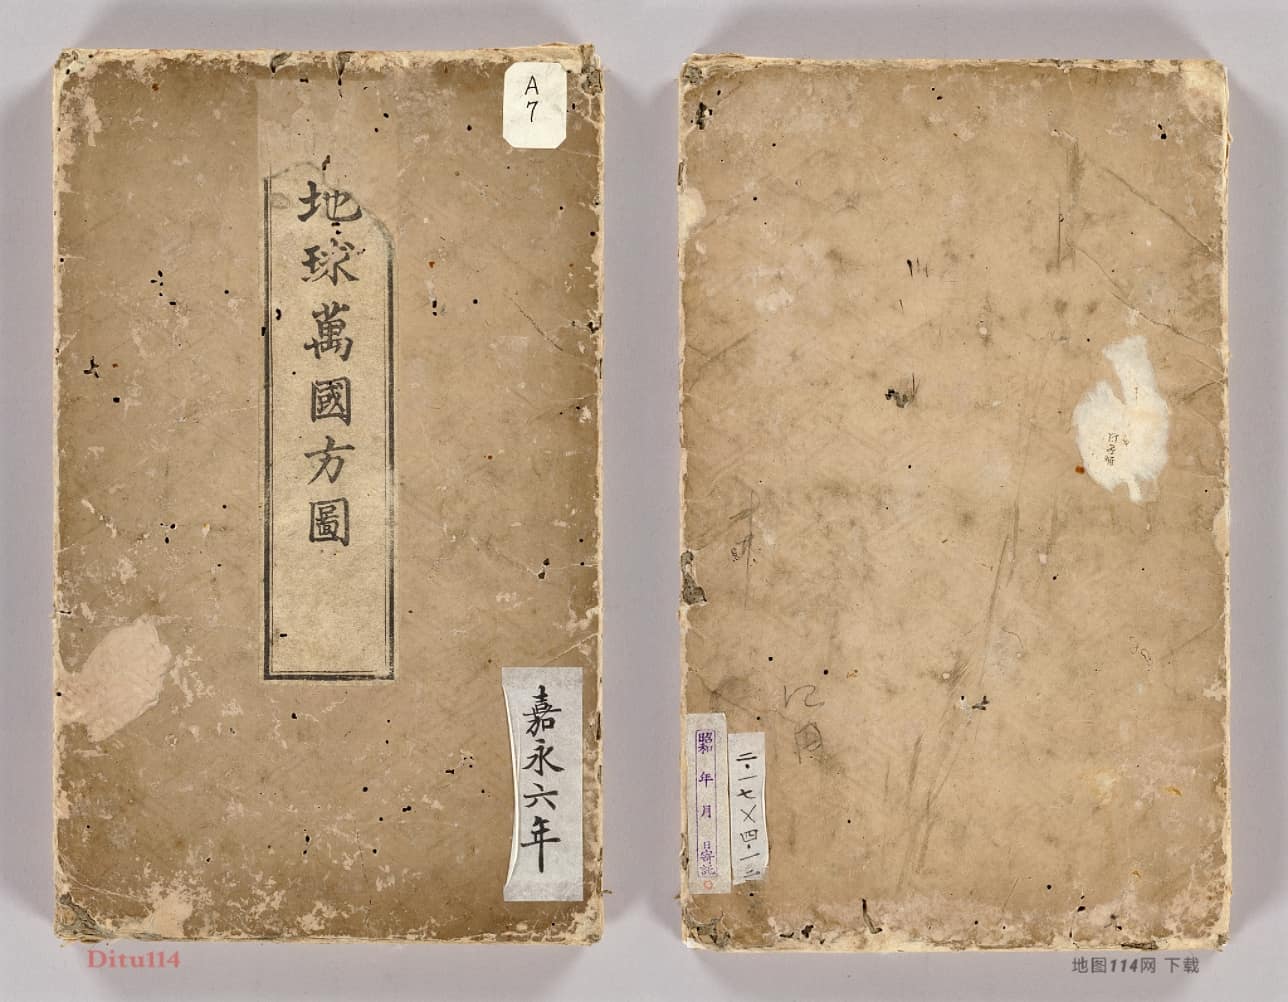 A
7
地球萬國方圖
嘉永六年
昭和 年 月 日寄託
二・一七×四・一三
Ditu114
地图114网 下载